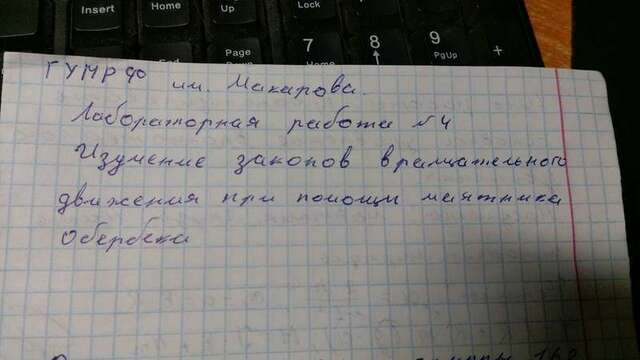 Insert
Home
Page
Up
Lock
7
Home
8
9
PgUp
+
Page
ГУМРФ им. Макарова.
Лабораторная работа №4
Изучение законов вращательного
движения при помощи маятника
Обербека